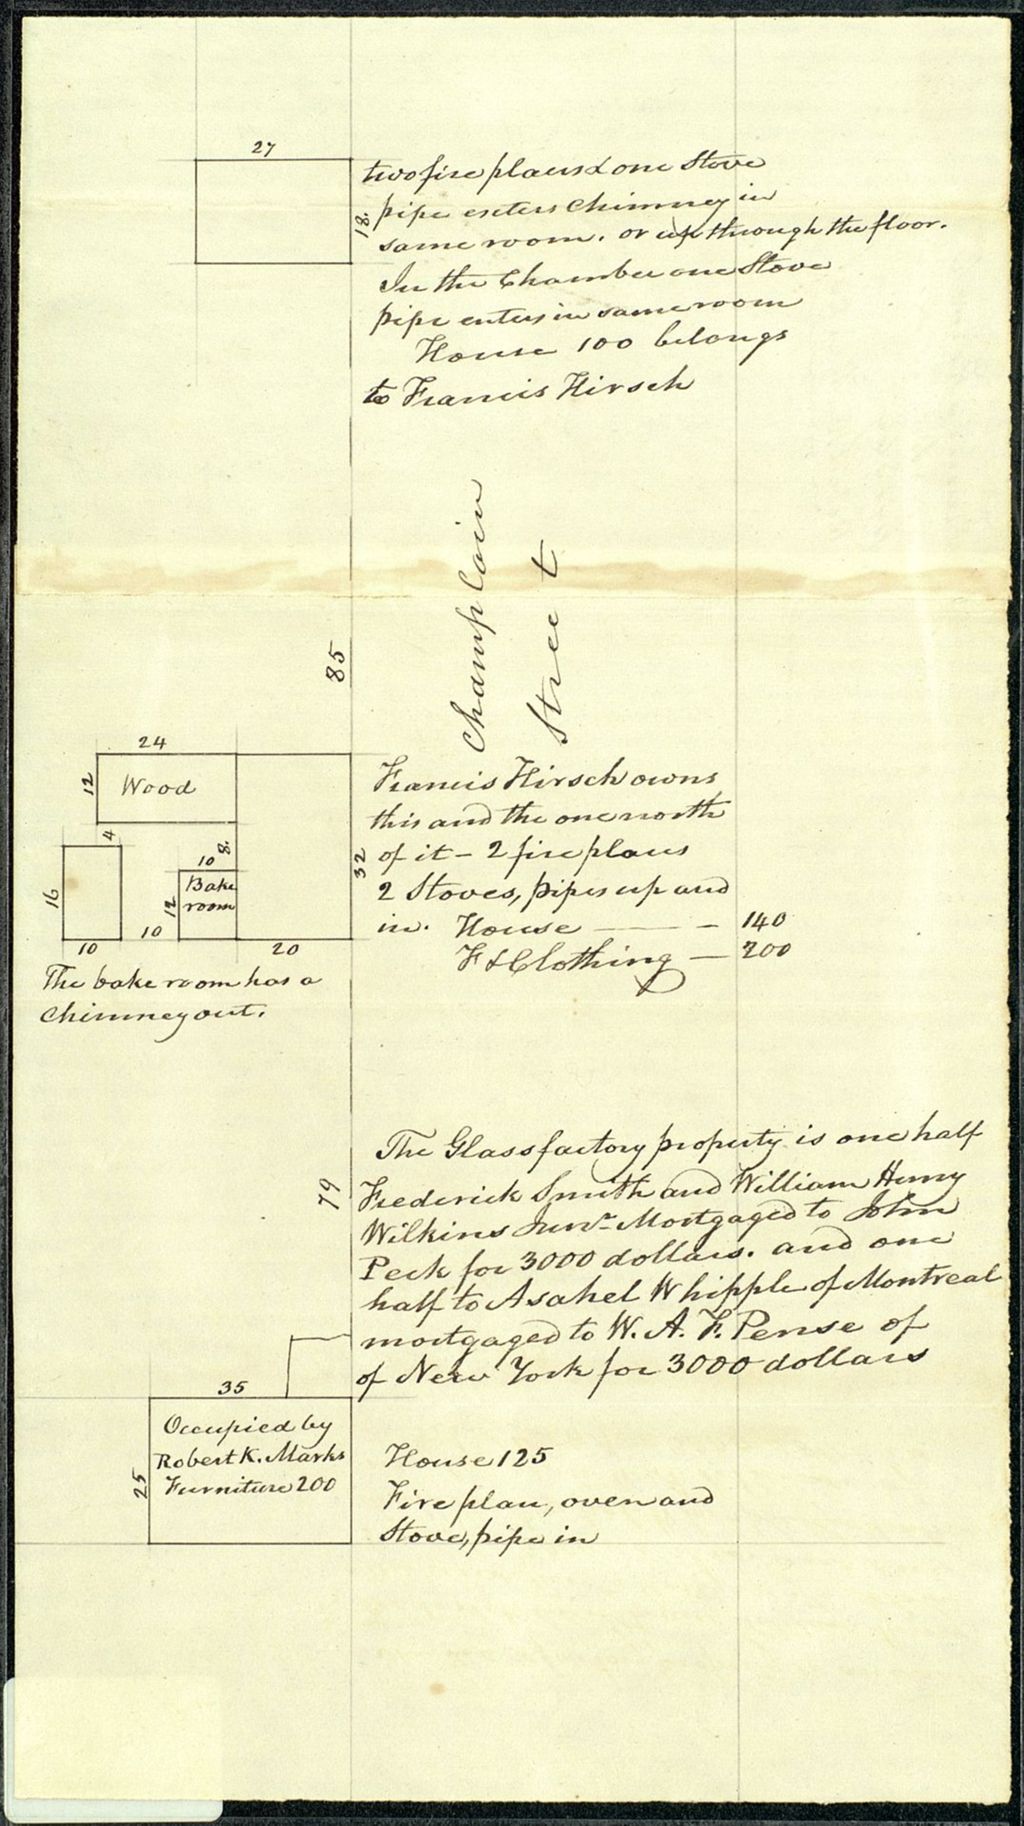 27
two fire places & one Stove
18. pipe enters Chimney in
same room. or up through the floor.
In the Chamber one Stove
pipe enters in same room
House 100 belongs
to Francis Hirsch
Champlain
Street
85
24
12 Wood
4
16
10 8.
12 Bake
room
10
10
20
32
Francis Hirsch owns
this and the one north
of it - 2 fire places
2 Stoves, pipes up and
in. House — - 140
F & Clothing — 200
The bake room has a
chimney out.
79
The Glass factory property is one half
Frederick Smith and William Henry
Wilkins Junr. Mortgaged to John
Peck for 3000 dollars. and one
half to Asahel Whipple of Montreal
mortgaged to W. A. F. Pense of
of New York for 3000 dollars
35
25
Occupied by
Robert K. Marks
Furniture 200
House 125
Fire place, oven and
Stove, pipe in